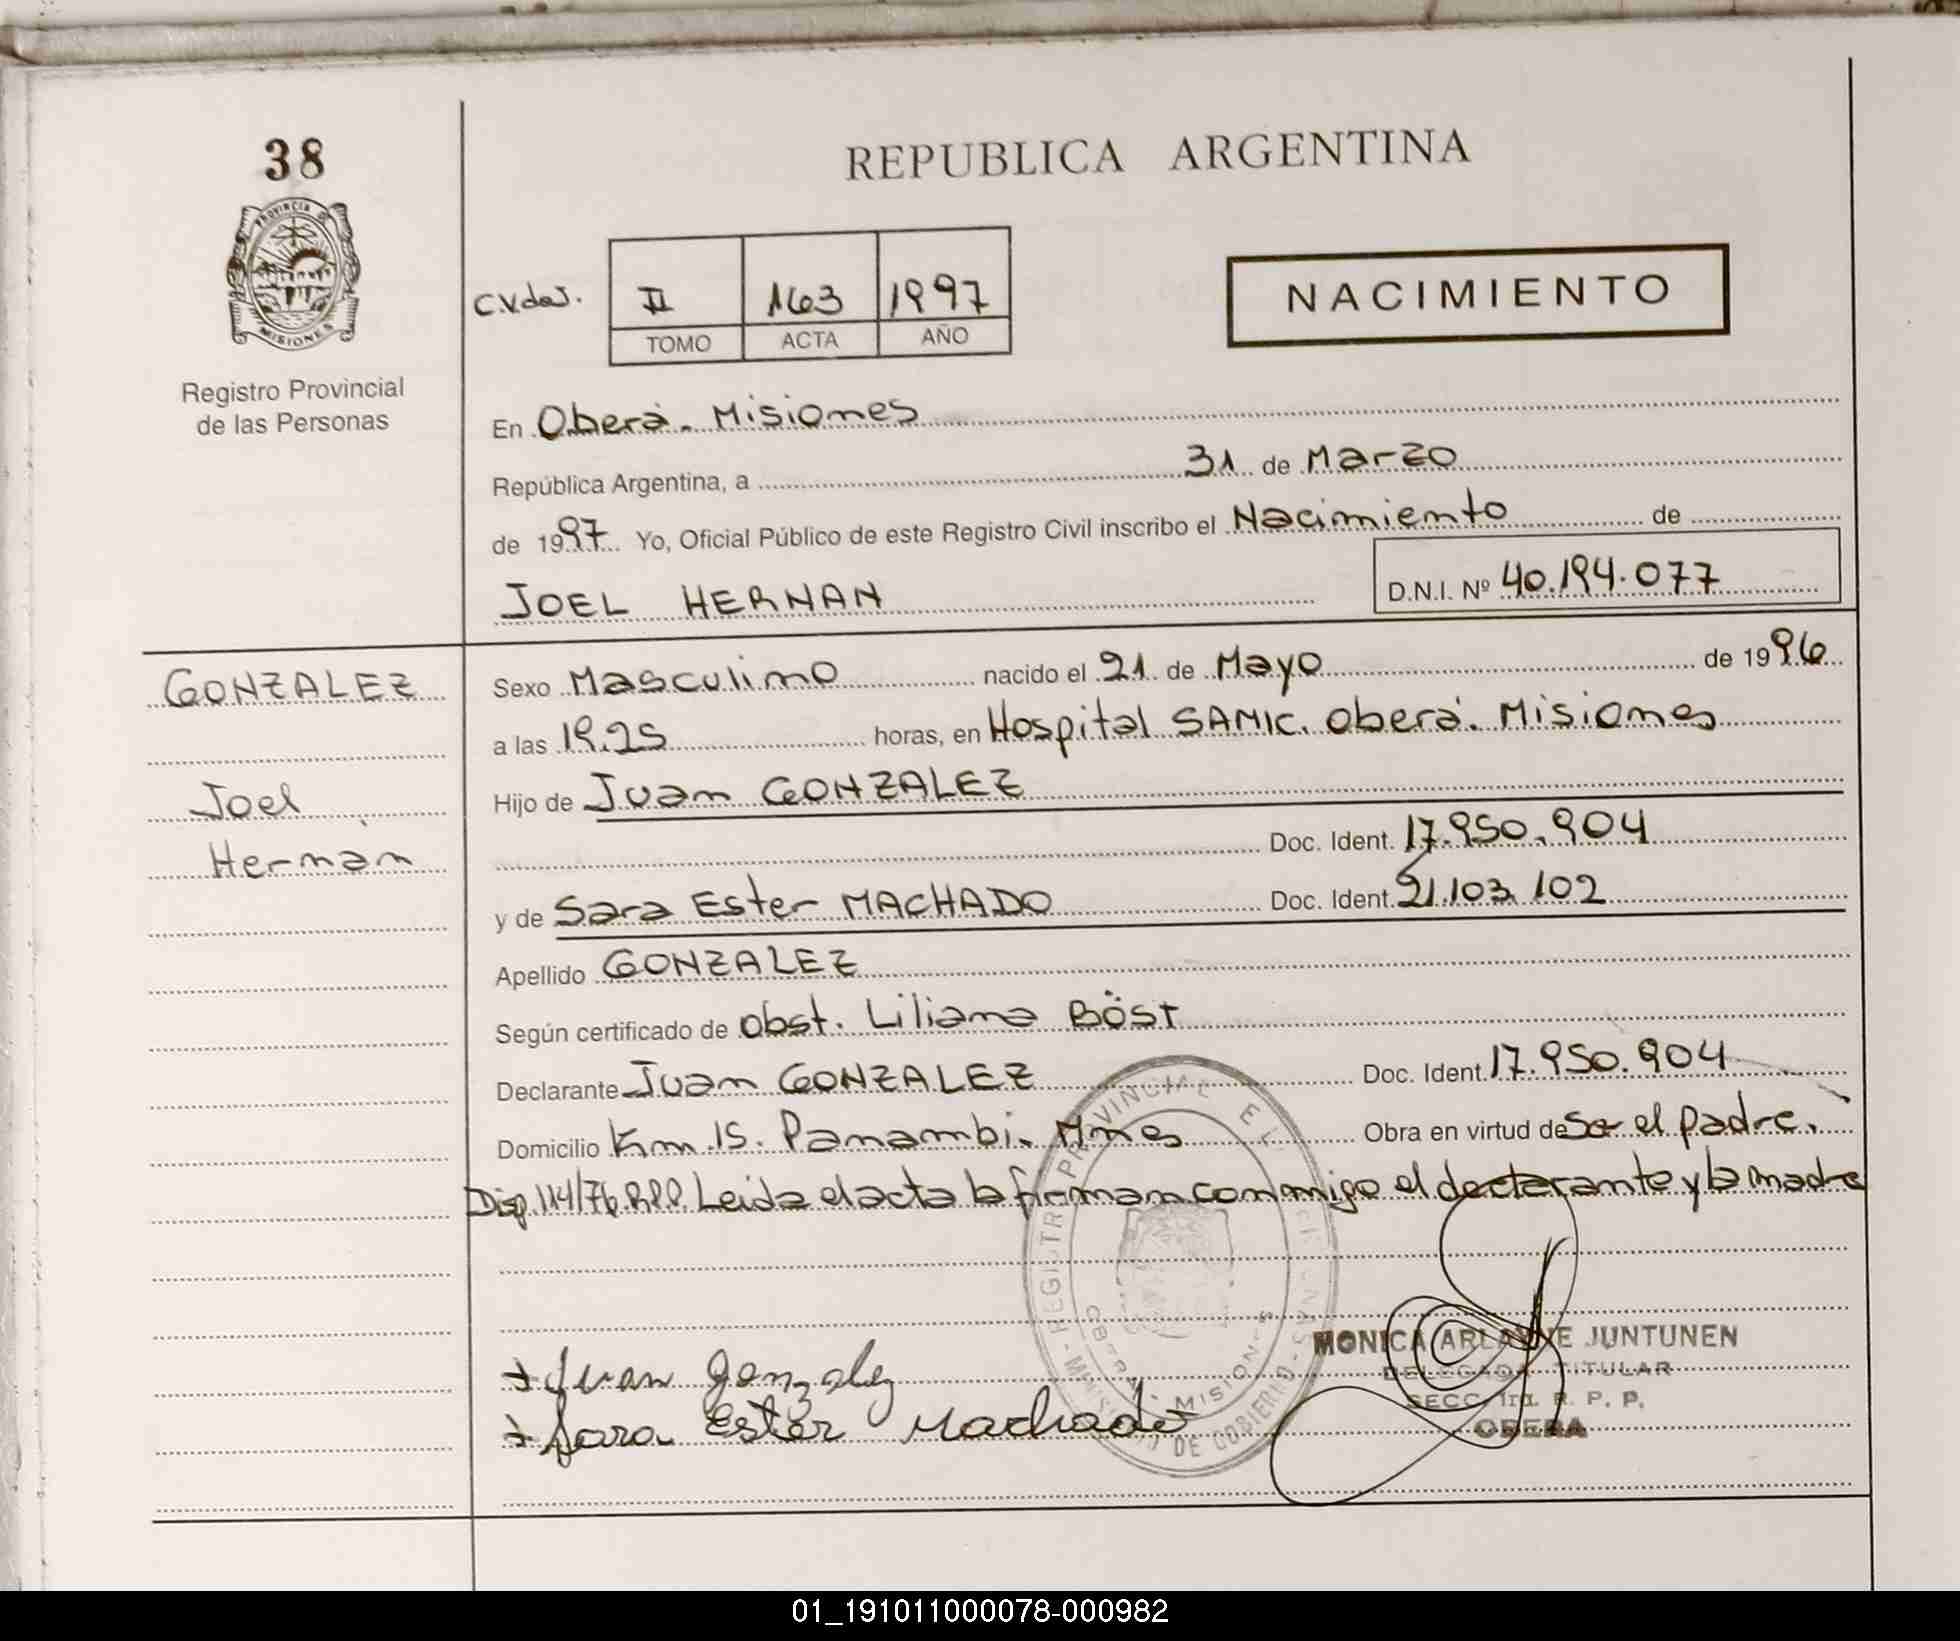 38
REPUBLICA ARGENTINA
PROVINCIA DE
MISIONES
Registro Provincial
de las Personas
C.Vdas.
II 163 1997
TOMO ACTA AÑO
NACIMIENTO
En Oberá. Misiones
República Argentina, a 31 de Marzo
de 1997 Yo, Oficial Público de este Registro Civil inscribo el Nacimiento de
JOEL HERNAN D.N.I. Nº 40.194.077
GONZALEZ
Joel
Hernán
Sexo Masculino nacido el 21 de Mayo de 1996
a las 19.25 horas, en Hospital SAMIC. Oberá. Misiones
Hijo de Juan GONZALEZ
Doc. Ident. 17.950.904
y de Sara Ester MACHADO Doc. Ident. 21.103.102
Apellido GONZALEZ
Según certificado de obst. Liliana BÖST
Declarante Juan GONZALEZ Doc. Ident. 17.950.904
Domicilio Km.15. Panambi. Mnes Obra en virtud de Ser el padre.
Disp.114/76.R.P.P. Leida el acta la firman conmigo el declarante y la madre
Juan Gonzalez
Sara Ester Machado
MONICA ARLADNE JUNTUNEN
DELEGADA TITULAR
SECC. 1ra. R. P. P.
OBERA
REGISTRO PROVINCIAL
MINISTERIO DE GOBIERNO
OBERA - MISIONES
01_191011000078-000982